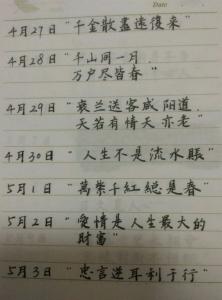 Date
4月27日 "千金散盡还復来"
4月28日 "千山同一月,
万户尽皆春"
4月29日 "衰兰送客咸阳道.
天若有情天亦老"
4月30日 "人生不是流水賬"
5月1日 "萬紫千红總是春"
5月2日 "愛情是人生最大的
財富"
5月3日 "忠言逆耳利于行"